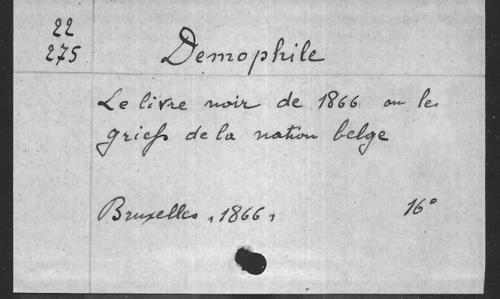 22
275
Demophile
Le livre noir de 1866 ou les
griefs de la nation belge
Bruxelles, 1866, 16°